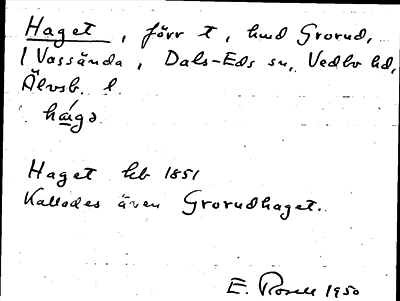 Haget, förr t, hmd Grorud,
1 Vassända, Dals-Eds sn, Vedbo hd,
Älvsb. l.
Haget hb 1851
Kallades även Grorudhaget.
E. Rosell 1950